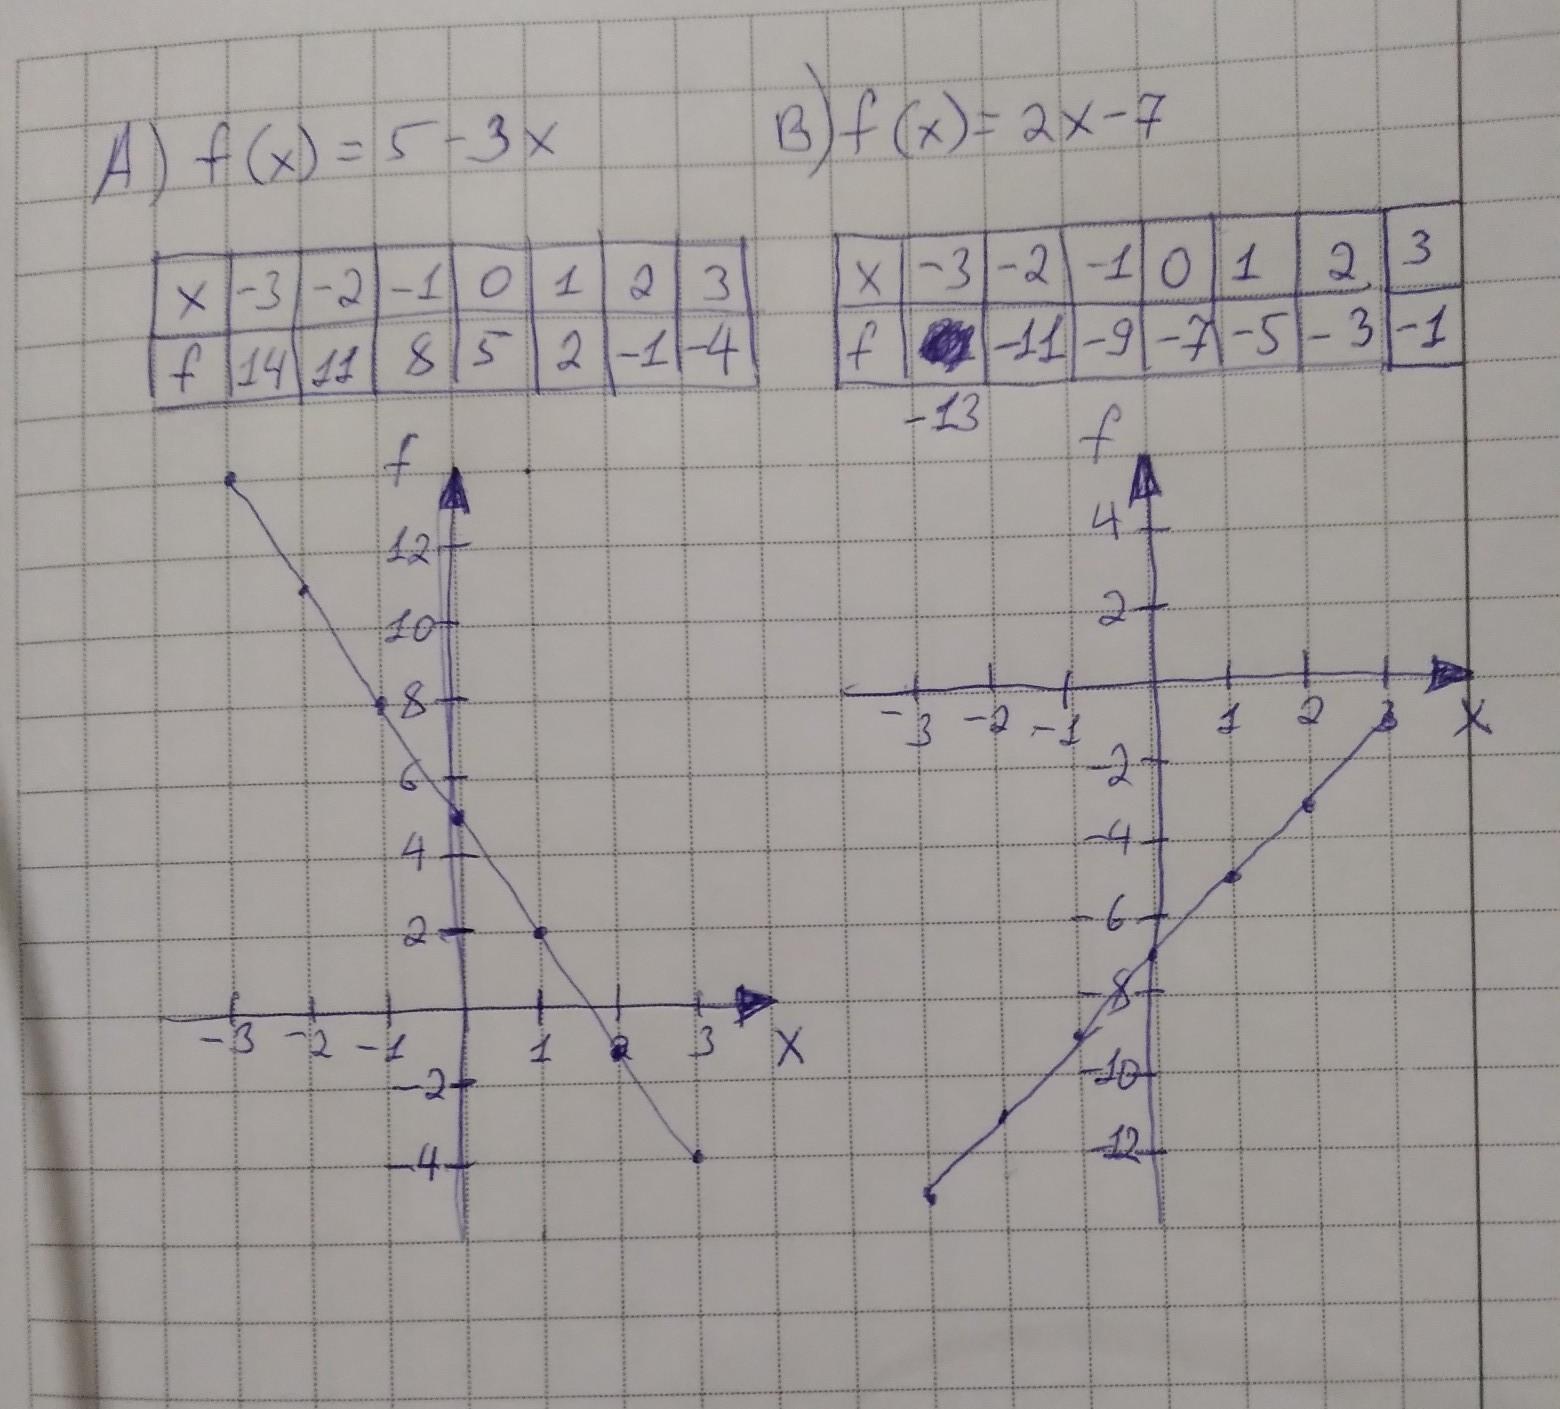 A) f(x) = 5 - 3x
B) f(x) = 2x - 7
x -3 -2 -1 0 1 2 3
f 14 11 8 5 2 -1 -4
x -3 -2 -1 0 1 2 3
f -11 -9 -7 -5 -3 -1
-13
f
12
10
8
6
4
2
-3 -2 -1 1 2 3 x
-2
-4
f
4
2
-3 -2 -1 1 2 3 x
-2
-4
-6
-8
-10
-12